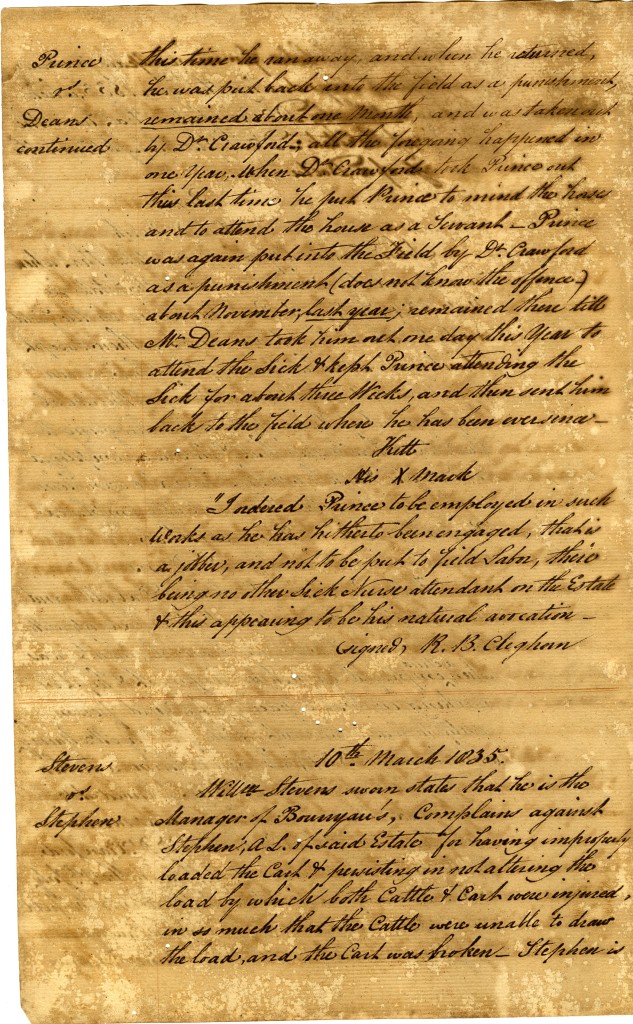 Prince
vs.
Deans
continued
this time he ran away, and when he returned,
he was put back into the field as a punishment,
remained about one Month, and was taken out
by Dr. Crawford; all the foregoing happened in
one Year, when Dr. Crawford took Prince out
this last time he put Prince to mind the horses
and to attend the house as a Servant _ Prince
was again put into the Field by Dr. Crawford
as a punishment (does not know the offence)
about November, last year; remained there till
Mr. Deans took him out one day this Year to
attend the Sick & kept Prince attending the
Sick for about three Weeks, and then sent him
back to the field where he has been ever since _
Kitt
His X Mark
"I ordered Prince to be employed in such
Works as he has hitherto been engaged, that is
a jobber, and not to be put to field Labor, there
being no other Sick Nurse attendant on the Estate
& this appearing to be his natural avocation _
(signed, R. B. Cleghorn
Stevens
vs.
Stephen
10th March 1835.
Willm Stevens sworn states that he is the
Manager of Bourryau's, Complains against
Stephen, A L. of said Estate for having improperly
loaded the Cart & persisting in not altering the
load by which both Cattle & Cart were injured,
in so much that the Cattle were unable to draw
the load, and the Cart was broken _ Stephen is